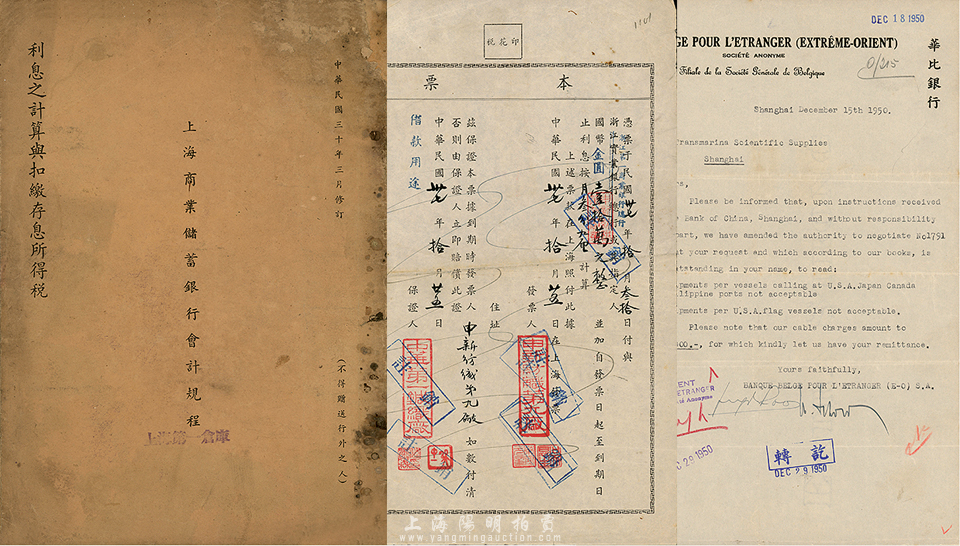 利息之計算與扣繳存息所得税
上海商業儲蓄銀行會計規程
上海第一倉庫
中華民國三十年三月修訂
(不得贈送行外之人)
印花税
1101
本票
憑票于民國卅七年拾月叁拾日付與
浙江實業銀行
國幣金圓壹拾萬之整
並加自發票日起至到期日
止利息按月
計算
上述票款在上海照付此據
中華民國卅七年拾月五日在上海
發票人
住址
申新紡織第九廠
茲保證本票據到期時發票人
如數付清
否則由保證人立即賠償此證
中華民國卅七年拾月五日
保證人
借款用途
註銷
DEC 18 1950
GE POUR L'ETRANGER (EXTRÊME-ORIENT)
SOCIÉTÉ ANONYME
Filiale de la Société Générale de Belgique
0/215
華比銀行
Shanghai December 15th 1950.
ransmarina Scientific Supplies
Shanghai
s,
Please be informed that, upon instructions received
Bank of China, Shanghai, and without responsibility
part, we have amended the authority to negotiate No1791
at your request and which according to our books, is
utstanding in your name, to read:
ipments per vessels calling at U.S.A.Japan Canada
ilippine ports not acceptable
ipments per U.S.A.flag vessels not acceptable.
Please note that our cable charges amount to
000.-, for which kindly let us have your remittance.
Yours faithfully,
BANQUE BELGE POUR L'ETRANGER (E-O) S.A.
C 29 1950
轉訖
DEC 29 1950
上海陽明拍賣
www.yangmingauction.com